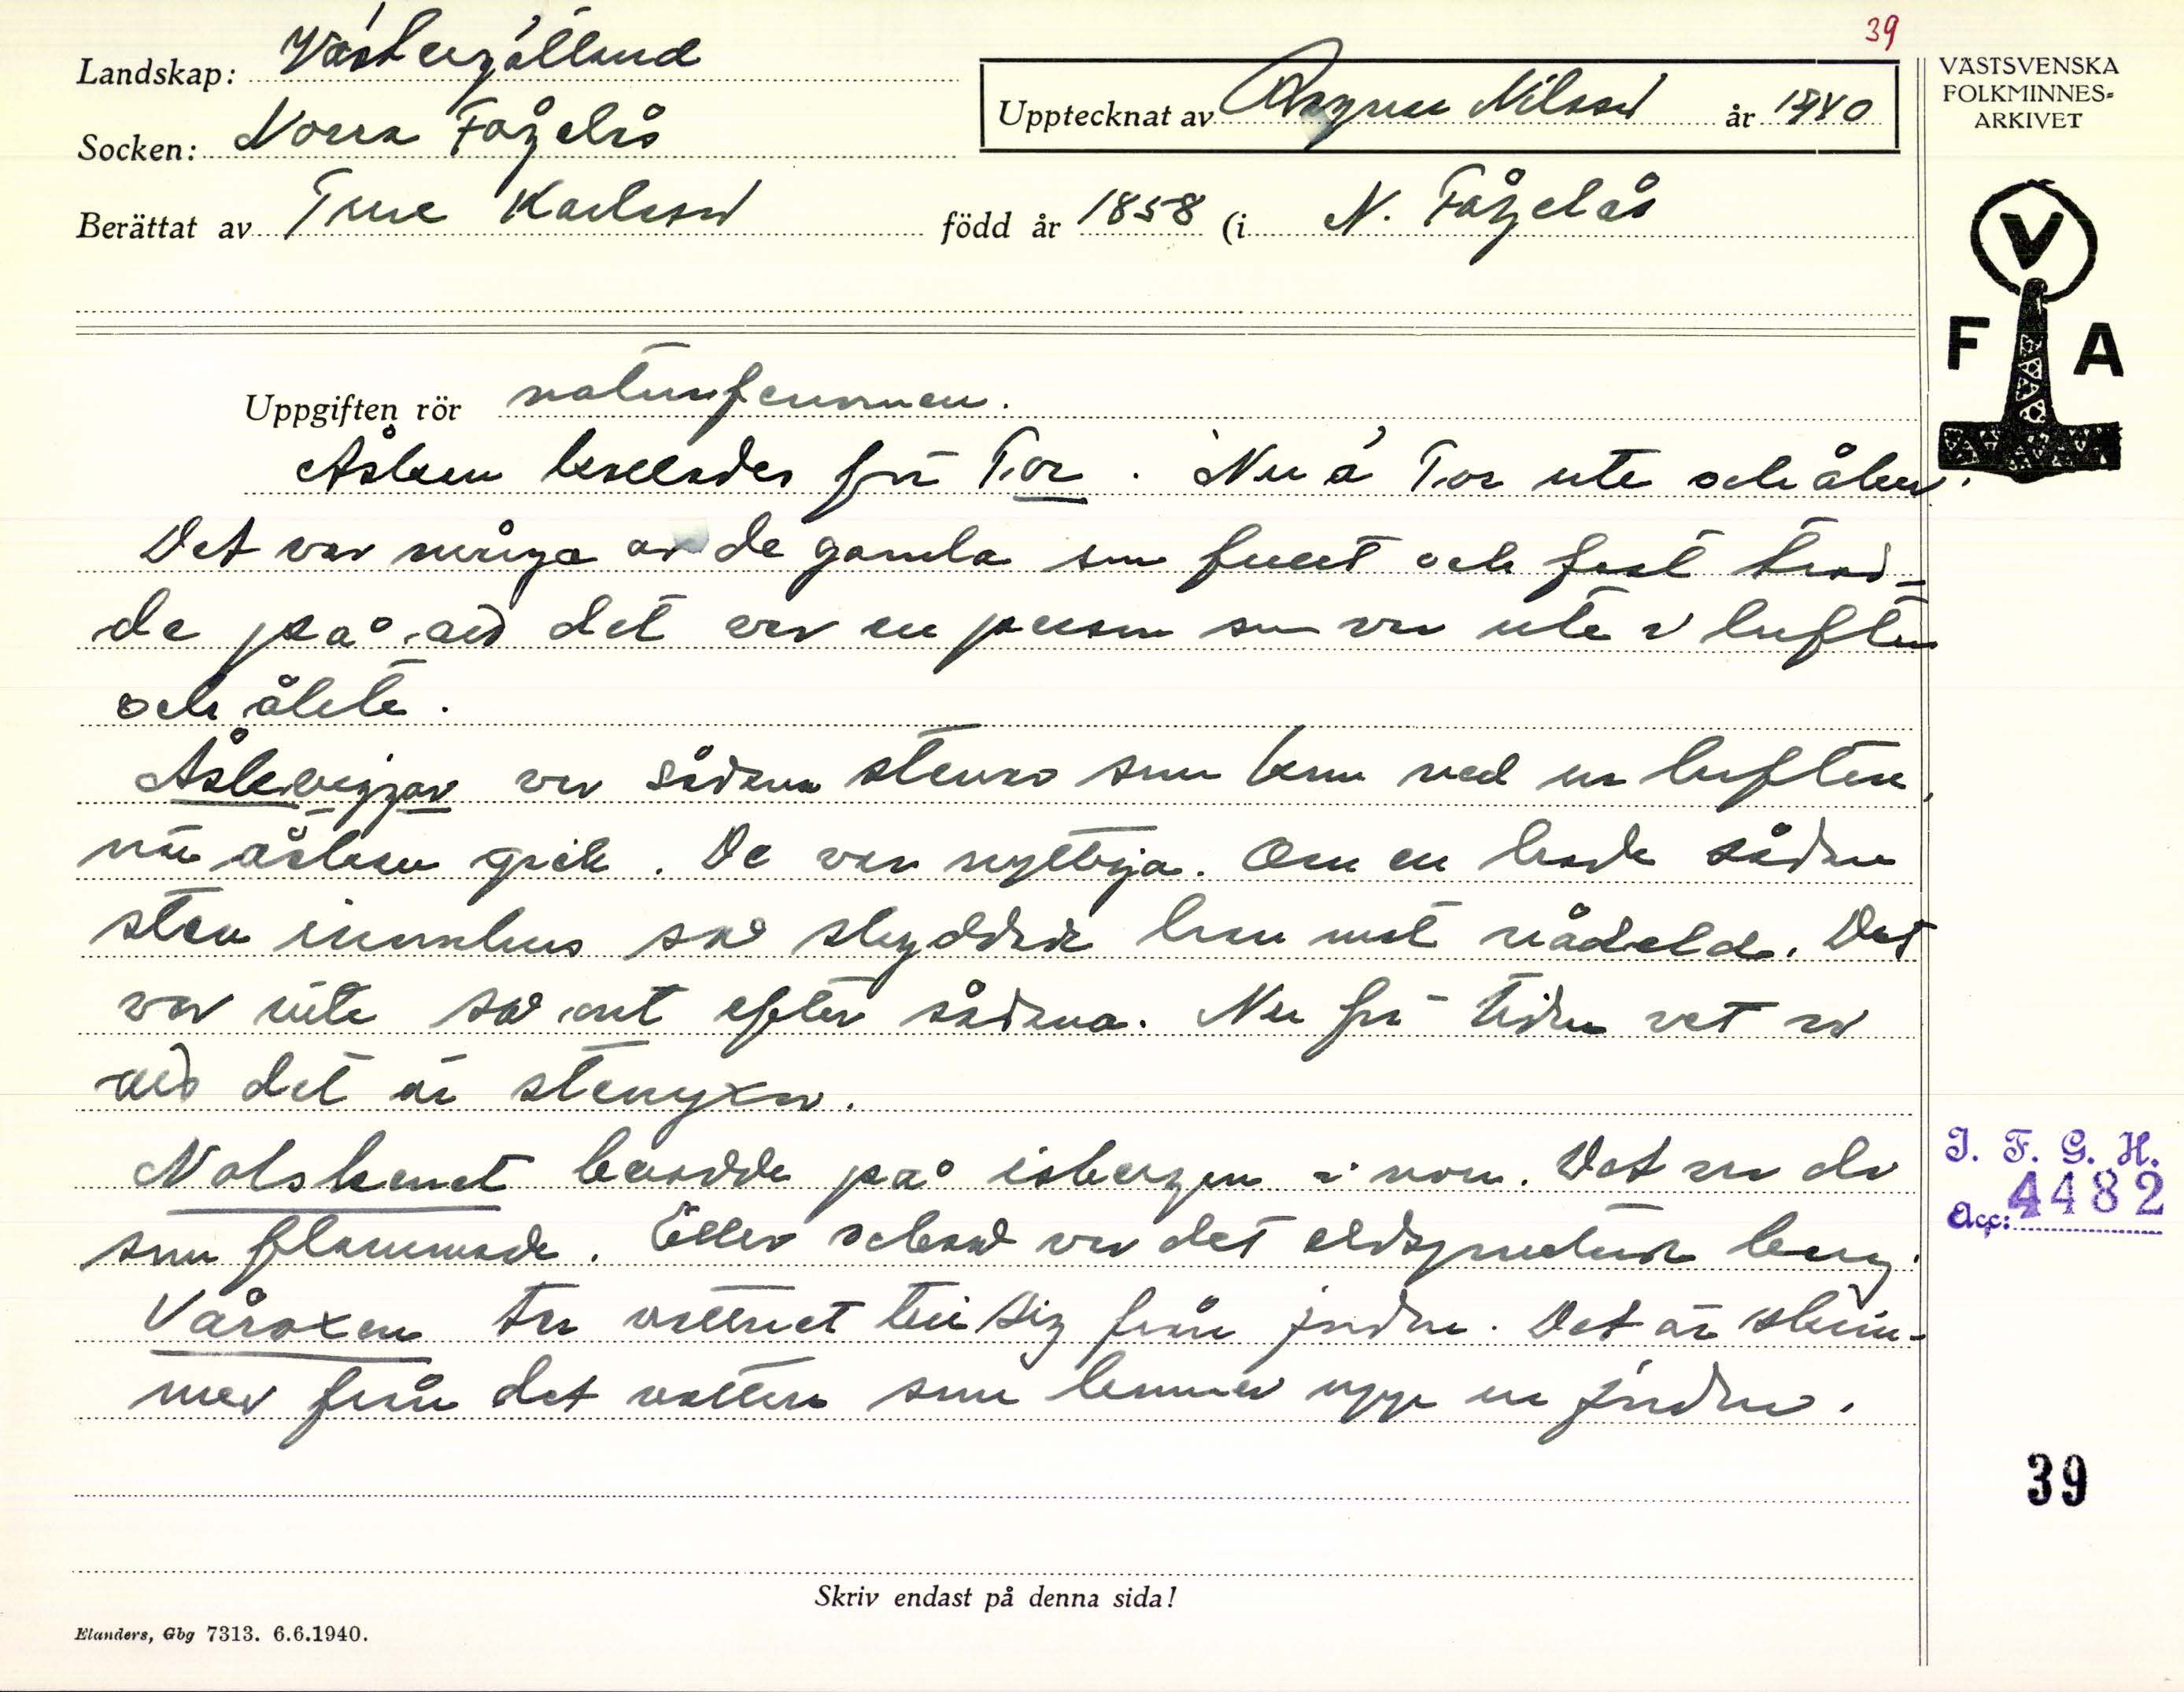 39
Landskap: Västergötland
Socken: Norra Fågelås
Upptecknat av Ragnar Nilsson år 1940
Berättat av Ture Karlsson född år 1858 (i N. Fågelås
VÄSTSVENSKA
FOLKMINNES-
ARKIVET
V
F A
Uppgiften rör naturfenomen.
Åskan kallades för Tor. Nu ä Tor ute och åker.
Det var många av de gamla som fullt och fast trod-
de på att det var en person som var ute i luften
och åkte.
Åskviggar var sådana stenar som kom ned ur luften,
när åskan gick. De var nyttiga. Om en hade sådan
sten inomhus så skyddade han mot vådeld. Det
var inte så ont efter sådana. Nu för tiden vet vi
att det är stenyxor.
Nolskenet berodde på isbergen i norr. Det var de
som flammade. Eller också var det eldsprutande berg.
Våroxen tar vattnet till sig från jorden. Det är skim-
mer från det vatten som kommer upp ur jorden.
I. F. G. H.
Acc: 4482
39
Skriv endast på denna sida!
Elanders, Gbg 7313. 6.6.1940.